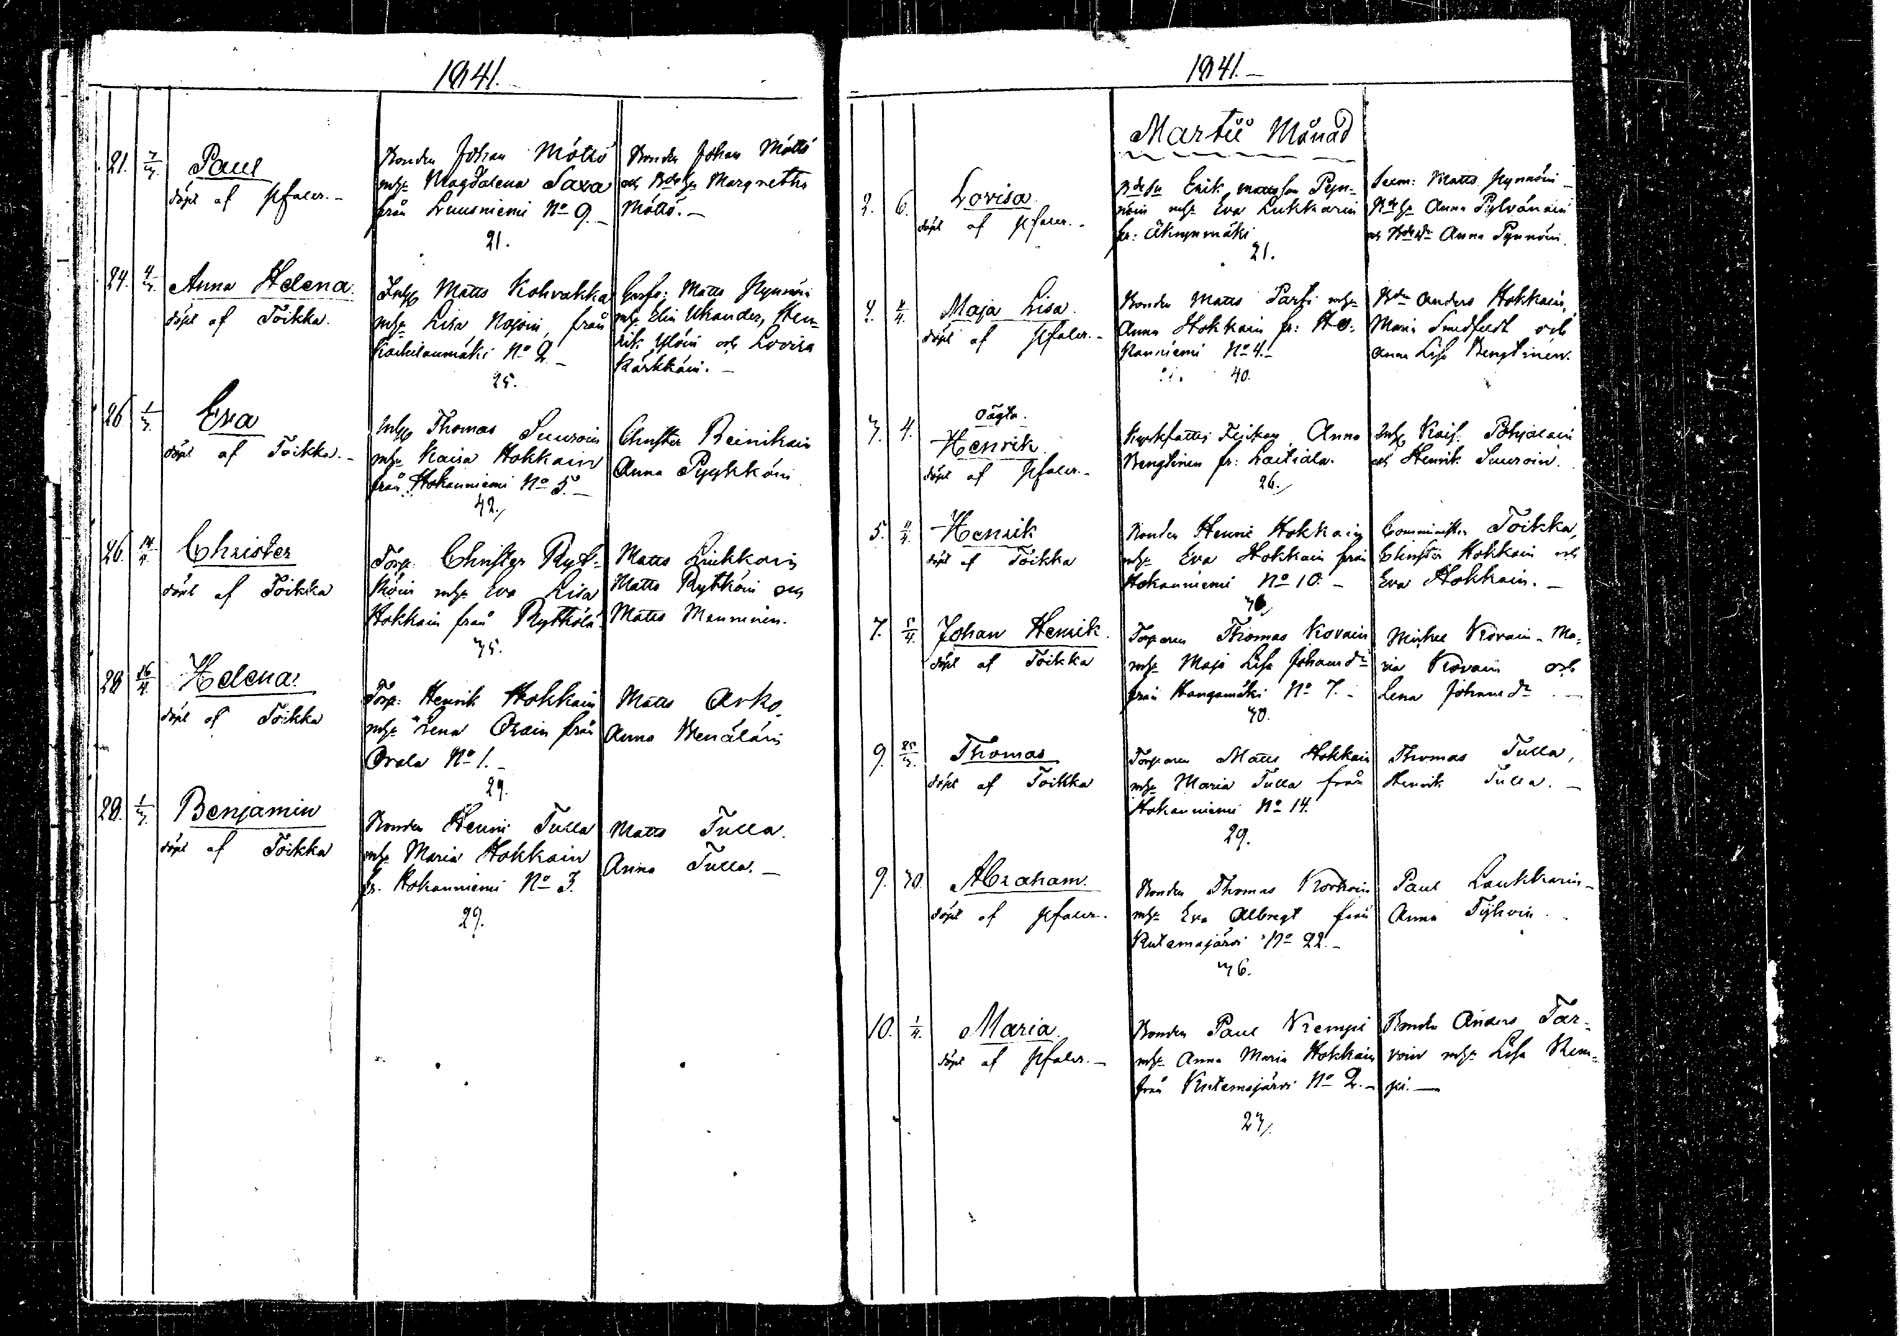 1841.
21. 7/3 Paul
döpt af Pfaler.-
Bonden Johan Möttö
mh: Magdalena Saxa
från Luusniemi No 9.-
21.
Bonden Johan Möttö
och Margretha
Möttö.-
24. 4/3 Anna Helena
döpt af Toikka.
Inh: Matts Kohvakka
mh: Lisa Nojoin, från
No 2.-
25.
Matts Hynnöin
mh: Elin Ukander, Hen-
rik Ylöin och Lovisa
Kärkkäin.-
26 1/3 Eva
döpt af Toikka.-
Inh: Thomas Suuroin
mh: Kaisa Hokkain
från Hokanniemi No 5.-
42.
Christer Reinikain
Anna Pyykköin
26 14/4 Christer
döpt af Toikka
Torp: Christer Ryt-
köin mh: Eva Lisa
Hokkain från Rytkölä
35.
Matts Liukkoin
Matts Rytköin och
Matts Manninen.
28 16/4 Helena.
döpt af Toikka
Torp: Henrik Hokkain
mh: Lena Orain från
Orala No 1.-
29.
Matts Arko.
Anna Venäläin
28. 1/3 Benjamin
döpt af Toikka
Bonden Henric Tulla
mh: Maria Hokkain
fr. Hokanniemi No 3.
29.
Matts Tulla.
Anna Tulla.-
1841.-
Martii Månad
2. 6. Lovisa.
döpt af Pfaler.-
Erik Mattsson Pyn-
nöin mh: Eva Lukkarin
fr: Äkrynmäki
21.
Matts Hynnöin
Anna Pylvänäin
och Anna Pynnöin.
2. 4/4. Maja Lisa.
döpt af Pfaler.-
Bonden Matts Parfi mh:
Anna Hokkain fr: Ho-
kanniemi No 4.-
40.
Anders Hokkain,
Maria Smedfelt och
Anna Lisa Bengtinen.
3. 4. oägta.
Henrik.
döpt af Pfaler.-
Anna
Bengtinen fr: Laitiala.
26.
Inh: Kais. Pohjalain
och Henrik Suuroin.
5. 4/4 Henrik
döpt af Toikka
Bonden Henric Hokkain
mh: Eva Hokkain från
Hokanniemi No 10.-
36.
Comminister Toikka,
Christer Hokkain och
Eva Hokkain.-
7. 5/4. Johan Henrik.
döpt af Toikka
Torparen Thomas Kovain
mh: Maja Lisa Johansdr
från Kangamäki No 7.-
30.
Michel Kovain - Ma-
ria Kovain och
Lena Johansdr.-
9. 25/3. Thomas
döpt af Toikka
Torparen Matts Hokkain
mh: Maria Tulla från
Hokanniemi No 14.
29.
Thomas Tulla,
Henrik Tulla.-
9. 30. Abraham.
döpt af Pfaler.-
Bonden Thomas Korhoin
mh: Eva Albregt från
Kutemajärvi No 22.-
36.
Paul Laukkarin-
Anna Tiihoin.-
10. 1/4. Maria.
döpt af Pfaler.-
Bonden Paul Kempi
mh: Anna Maria Hokkain
från Kutemajärvi No 2.-
27.
Bonden Anders Tar-
voin mh: Lisa Kem-
pi.-